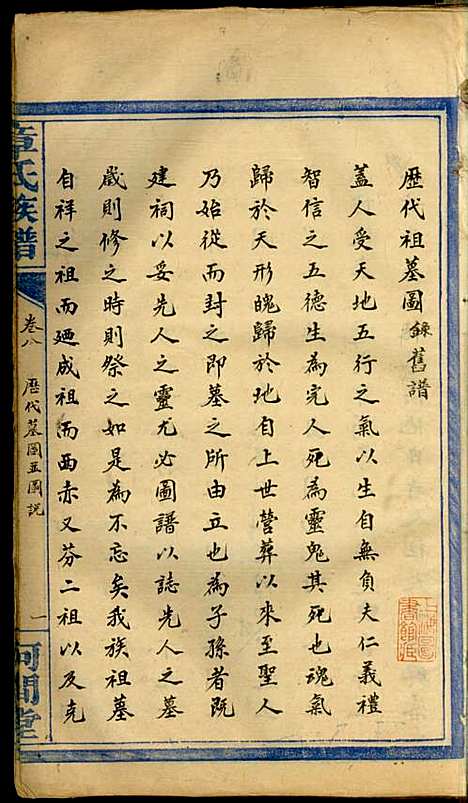 歷代祖墓圖 錄舊譜
蓋人受天地五行之氣以生自無負夫仁義禮
智信之五德生為完人死為靈鬼其死也魂氣
歸於天形魄歸於地自上世營葬以來至聖人
乃始從而封之即墓之所由立也為子孫者既
建祠以妥先人之靈尤必圖譜以誌先人之墓
歲則修之時則祭之如是為不忘矣我族祖墓
自祥之祖而廼成祖而西赤又芬二祖以及克
章氏族譜
卷八 歷代墓圖並圖說 一
河間堂